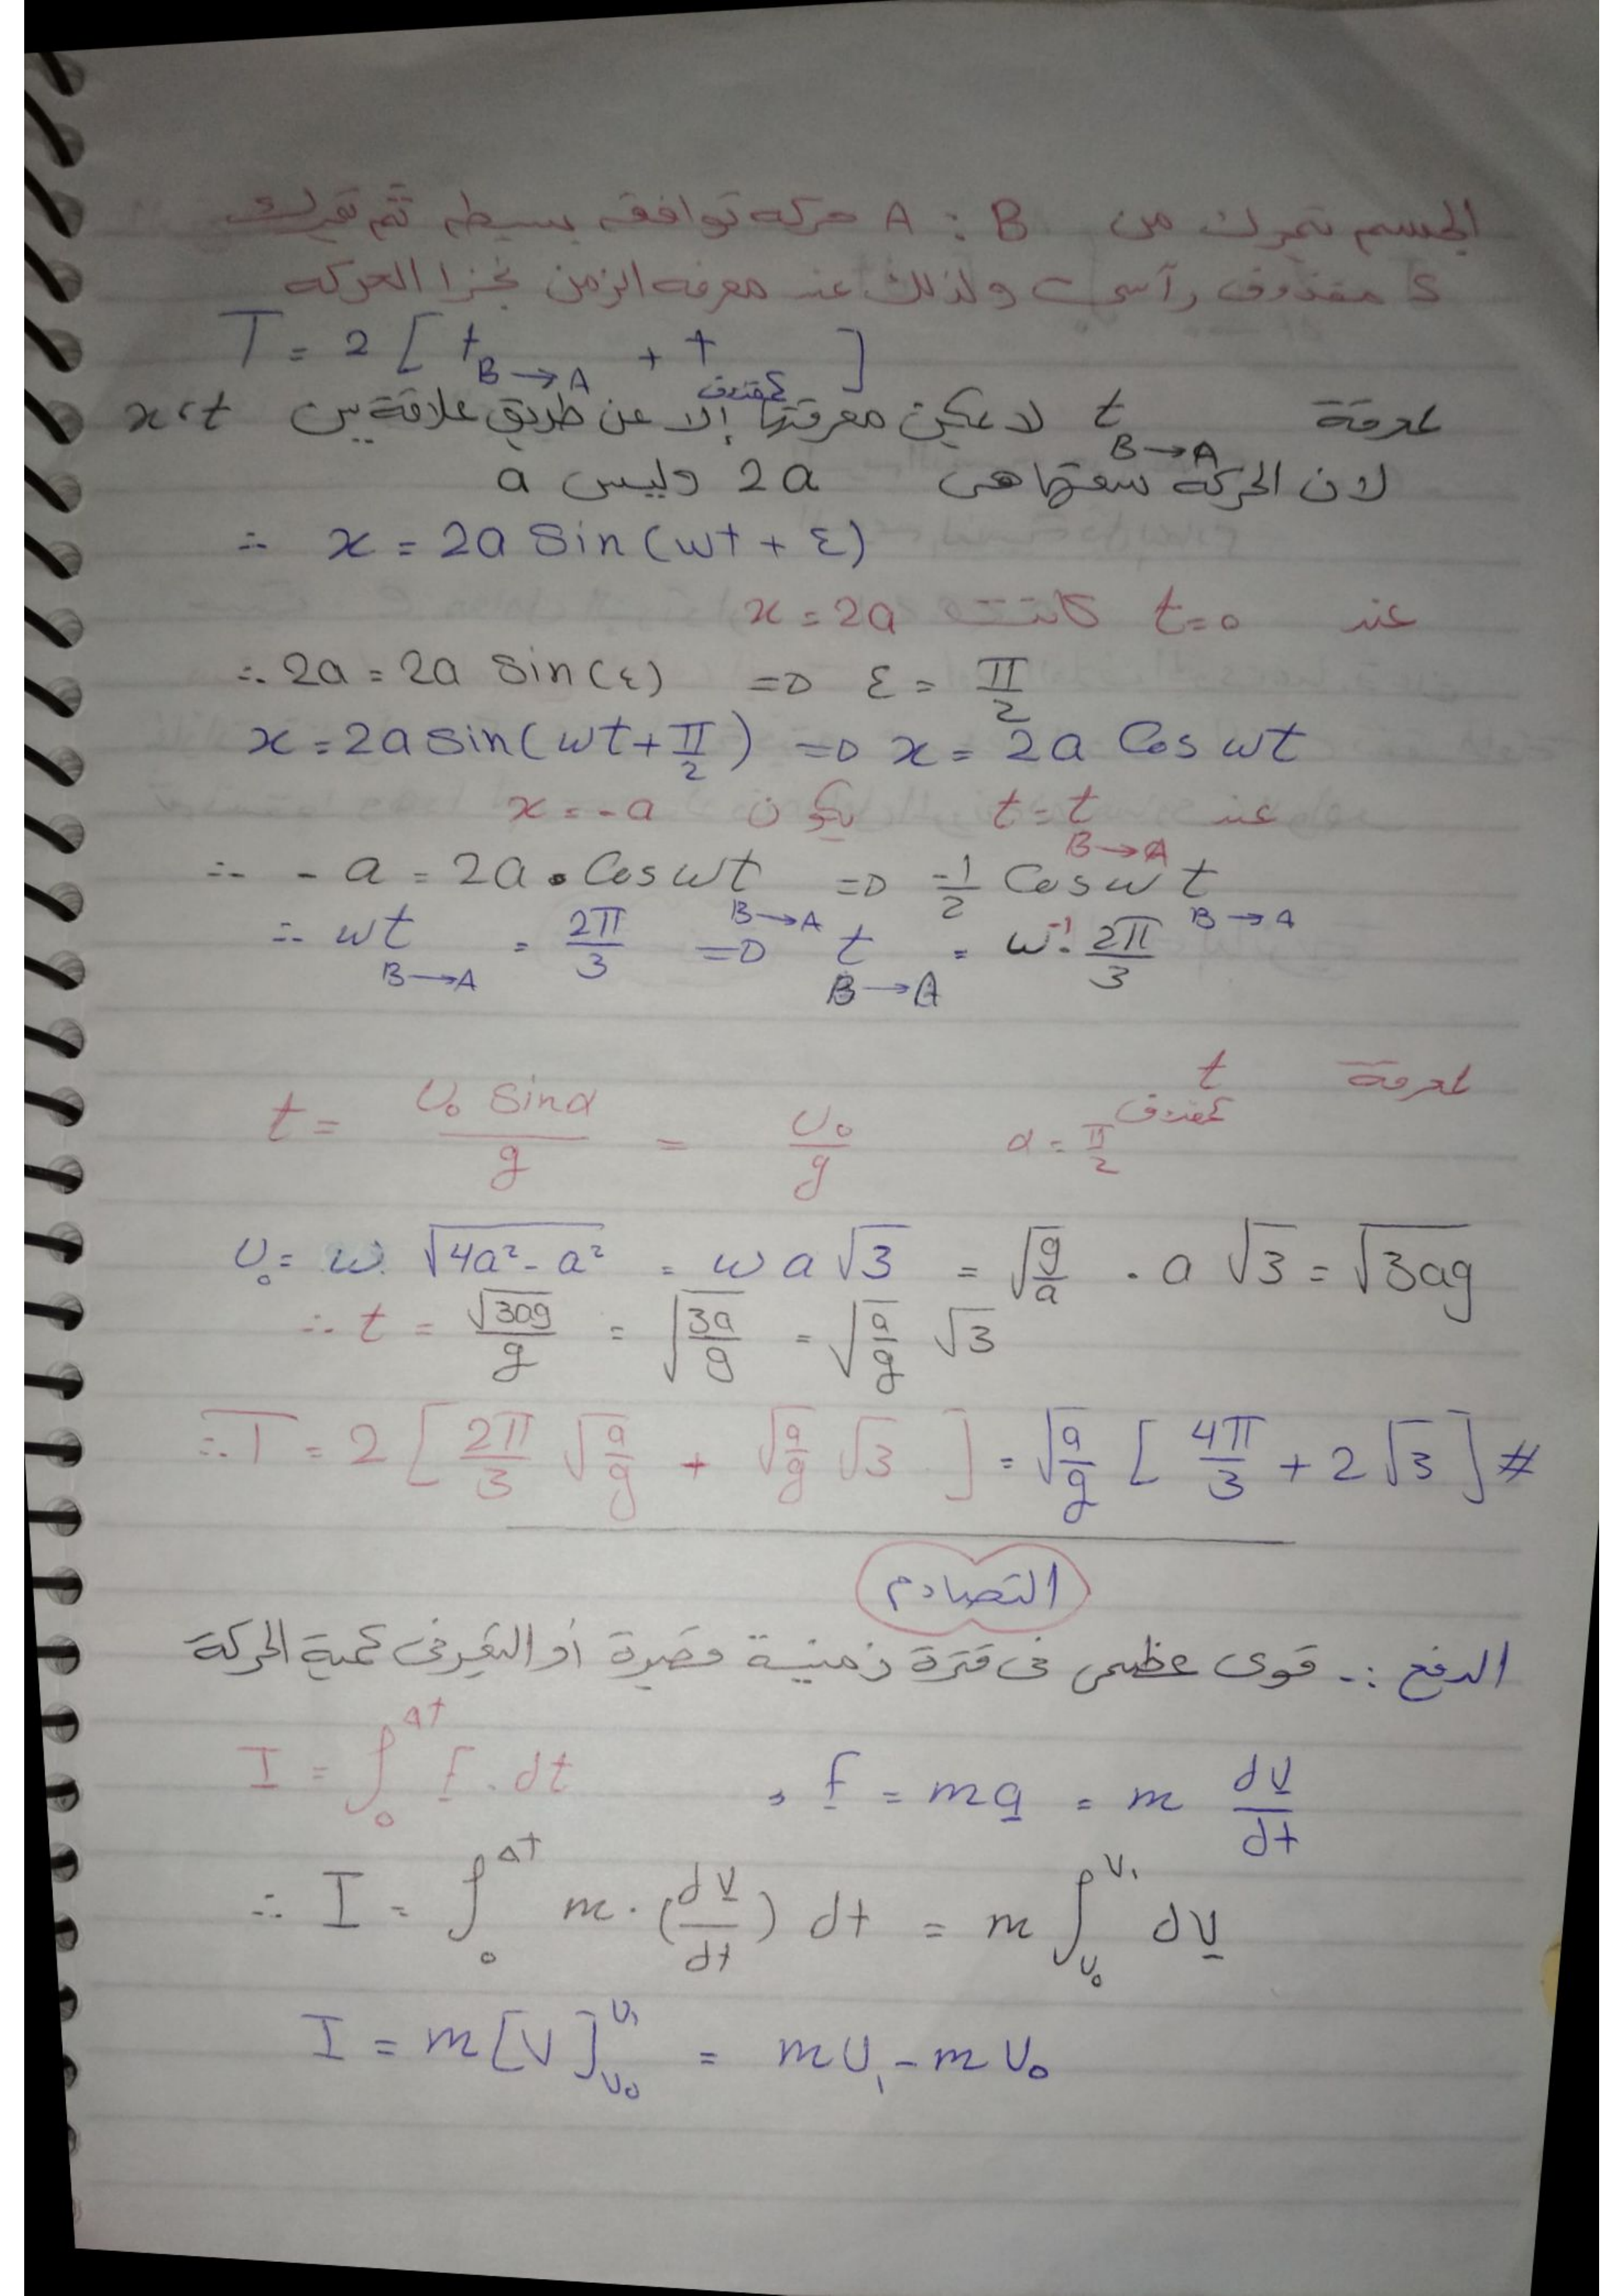 الجسم تحرك من A : B حركه توافقه بسيطه ثم تحرك
كمقذوف رآسي ولذلك عند معرفه الزمن نجزا الحركه
T = 2 [ t B→A + t كمقذوف ]
لمعرفة t B→A لا يمكن معرفتها إلا عن طريق علاقة بين x، t
لان الحركة سعتها هى 2a وليس a
∴ x = 2a Sin(wt + ε)
عند t=0 كانت x = 2a
∴ 2a = 2a Sin(ε) => ε = π/2
x = 2a sin(wt + π/2) => x = 2a Cos wt
عند t = t B→A يكون x = -a
∴ -a = 2a . Cos wt B→A => -1/2 Cos w t B→A
∴ wt B→A = 2π/3 => t B→A = w⁻¹ . 2π/3
لمعرفة t كمقذوف α = π/2 t = U₀ Sinα / g = U₀/g
U₀ = w. √(4a² - a²) = w a √3 = √(g/a) . a √3 = √(3ag)
∴ t = √(3ag)/g = √(3a/g) = √(a/g) √3
∴ T = 2 [ 2π/3 √(a/g) + √(a/g) √3 ] = √(a/g) [ 4π/3 + 2√3 ] #
التصادم
الدفع :- قوى عظمى فى فترة زمنية قصيرة أو التغير فى كمية الحركة
I = ∫₀^Δt F . dt , f = ma = m dV/dt
∴ I = ∫₀^Δt m . (dV/dt) dt = m ∫_{U₀}^{V₁} dV
I = m [V]_{U₀}^{U₁} = mU₁ - mU₀